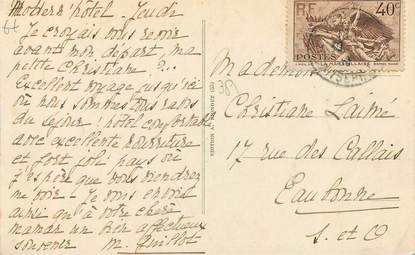 Modern'hôtel. Jeudi
Je croyais vous revoir
avant mon départ, ma
petite Christiane ?...
Excellent voyage jusqu'ici
où nous sommes très ravis
du séjour : hôtel confortable
avec excellente nourriture
et fort joli pays où
j'espère que vous viendrez
me voir - Je vous envoie
ainsi qu'à votre chère
maman un bien affectueux
souvenir M. Guillot
R.F. 40c
POSTES
Mademoiselle
Christiane Laimé
17 rue des Callais
Eaubonne
S. et O